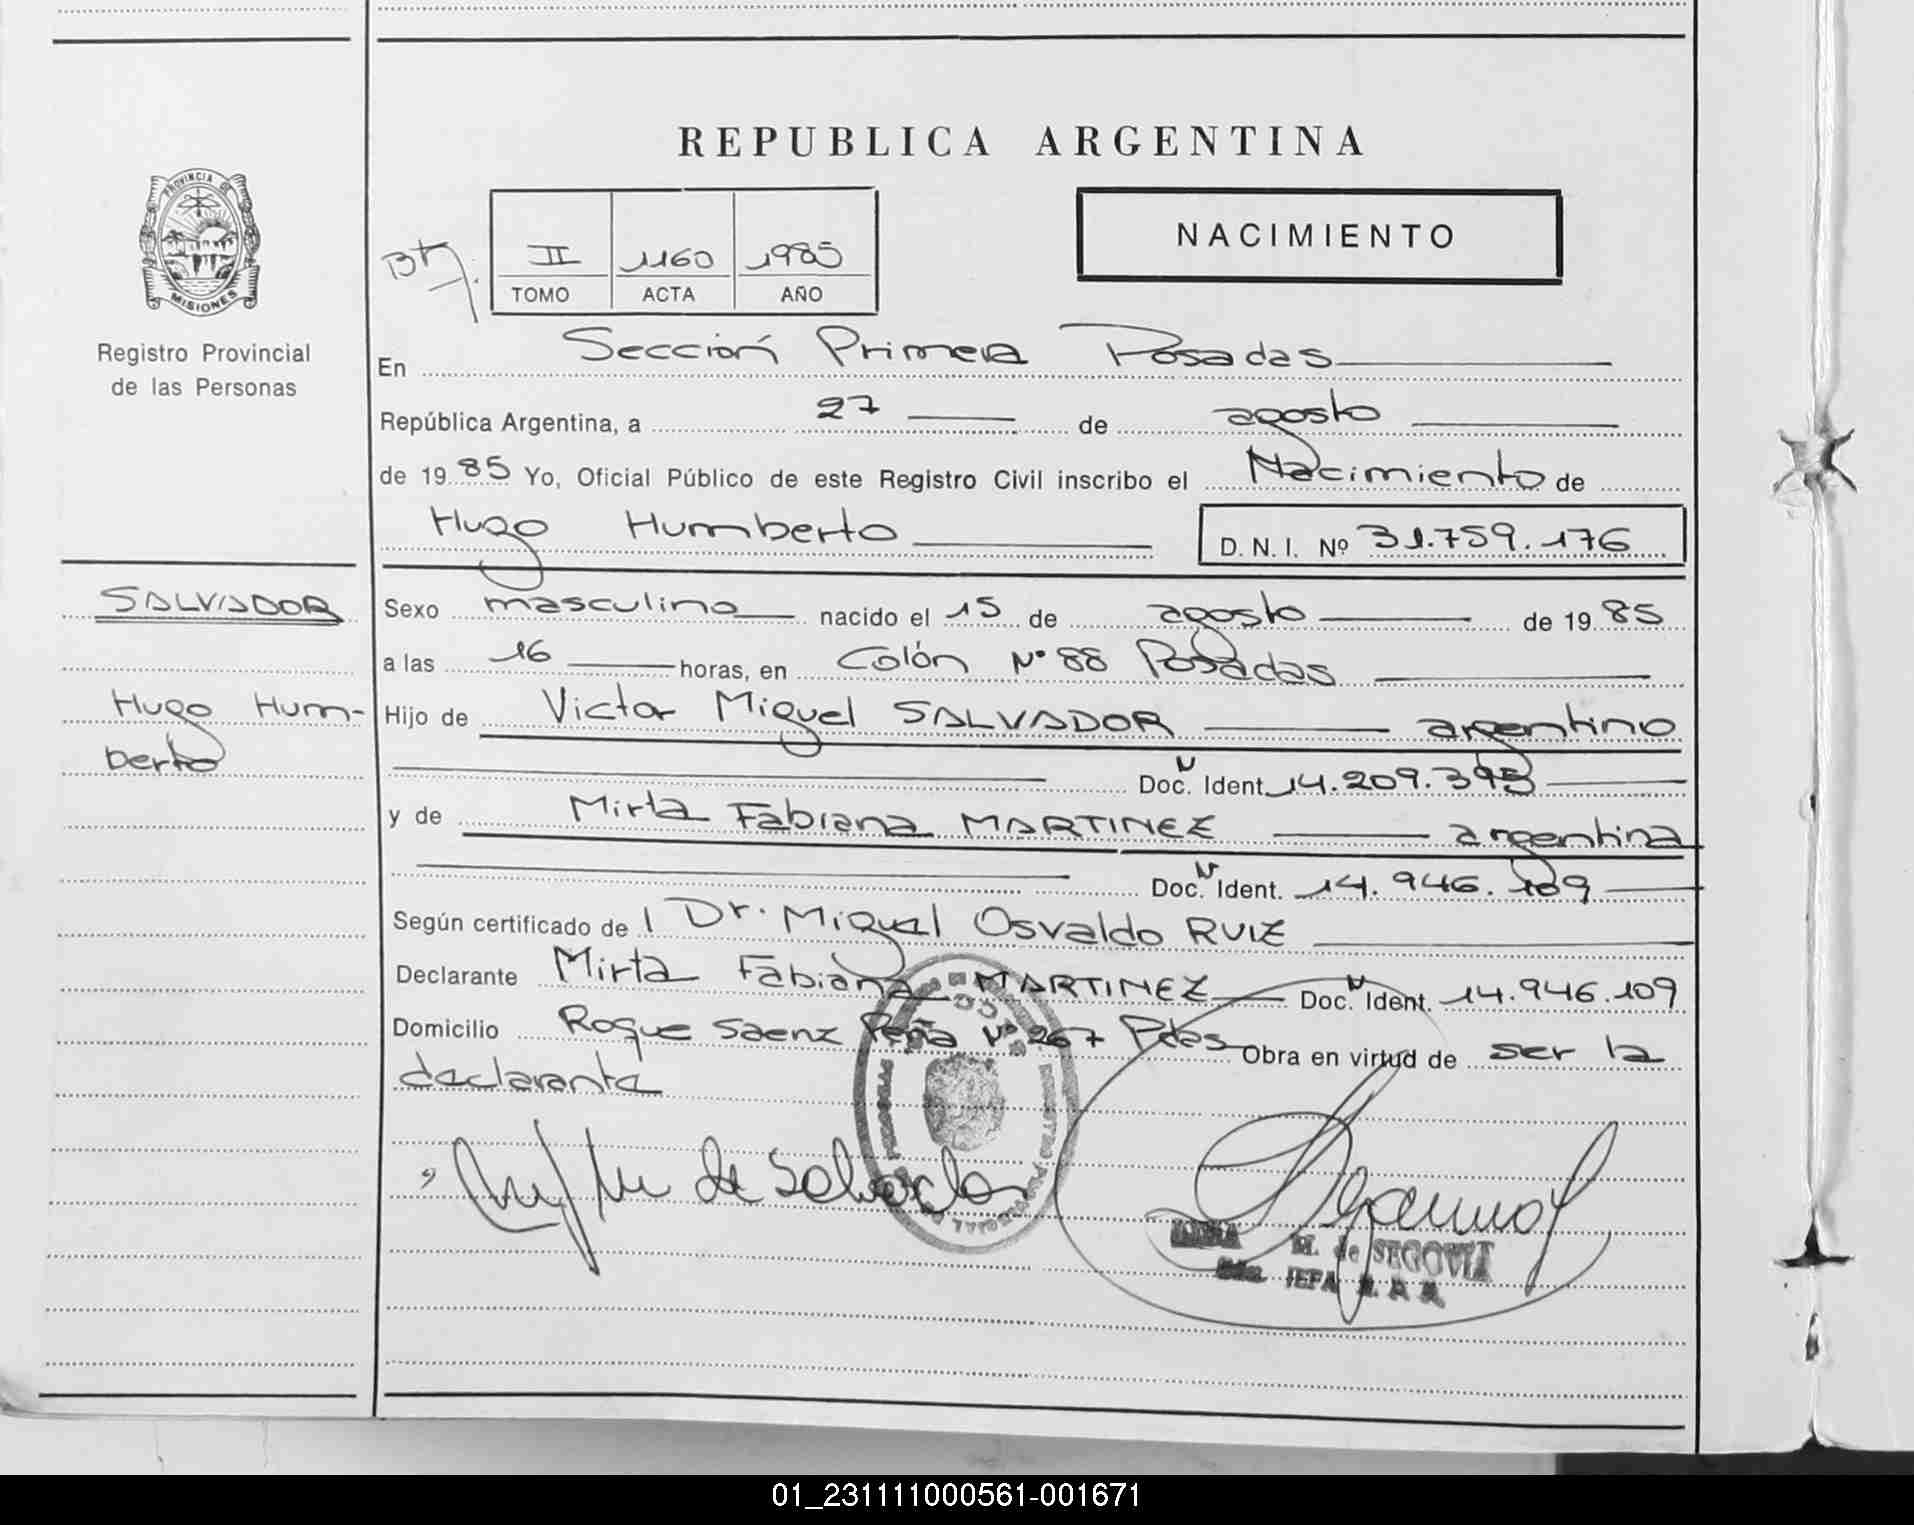 REPUBLICA ARGENTINA
PROVINCIA DE
MISIONES
Registro Provincial
de las Personas
II 1160 1985
TOMO ACTA AÑO
NACIMIENTO
En Sección Primera Posadas
República Argentina, a 27 de agosto
de 1985 Yo, Oficial Público de este Registro Civil inscribo el Nacimiento de
Hugo Humberto D. N. I. Nº 31.759.176
SALVADOR
Hugo Hum-
berto
Sexo masculino nacido el 15 de agosto de 1985
a las 16 horas, en Colón Nº 88 Posadas
Hijo de Victor Miguel SALVADOR argentino
Doc. N Ident. 14.209.393
y de Mirta Fabiana MARTINEZ argentina
Doc. N Ident. 14.946.109
Según certificado de l Dr. Miguel Osvaldo RUIZ
Declarante Mirta Fabiana MARTINEZ Doc. N Ident. 14.946.109
Domicilio Roque Saenz Peña Nº 267 Pdas Obra en virtud de ser la
declarante
de Salvador
M. de SEGOVIA
JEFA
01_231111000561-001671